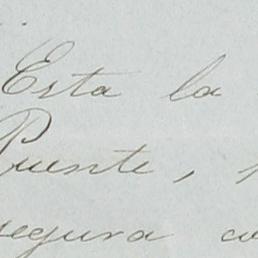 Esta la
Puente,
segura co